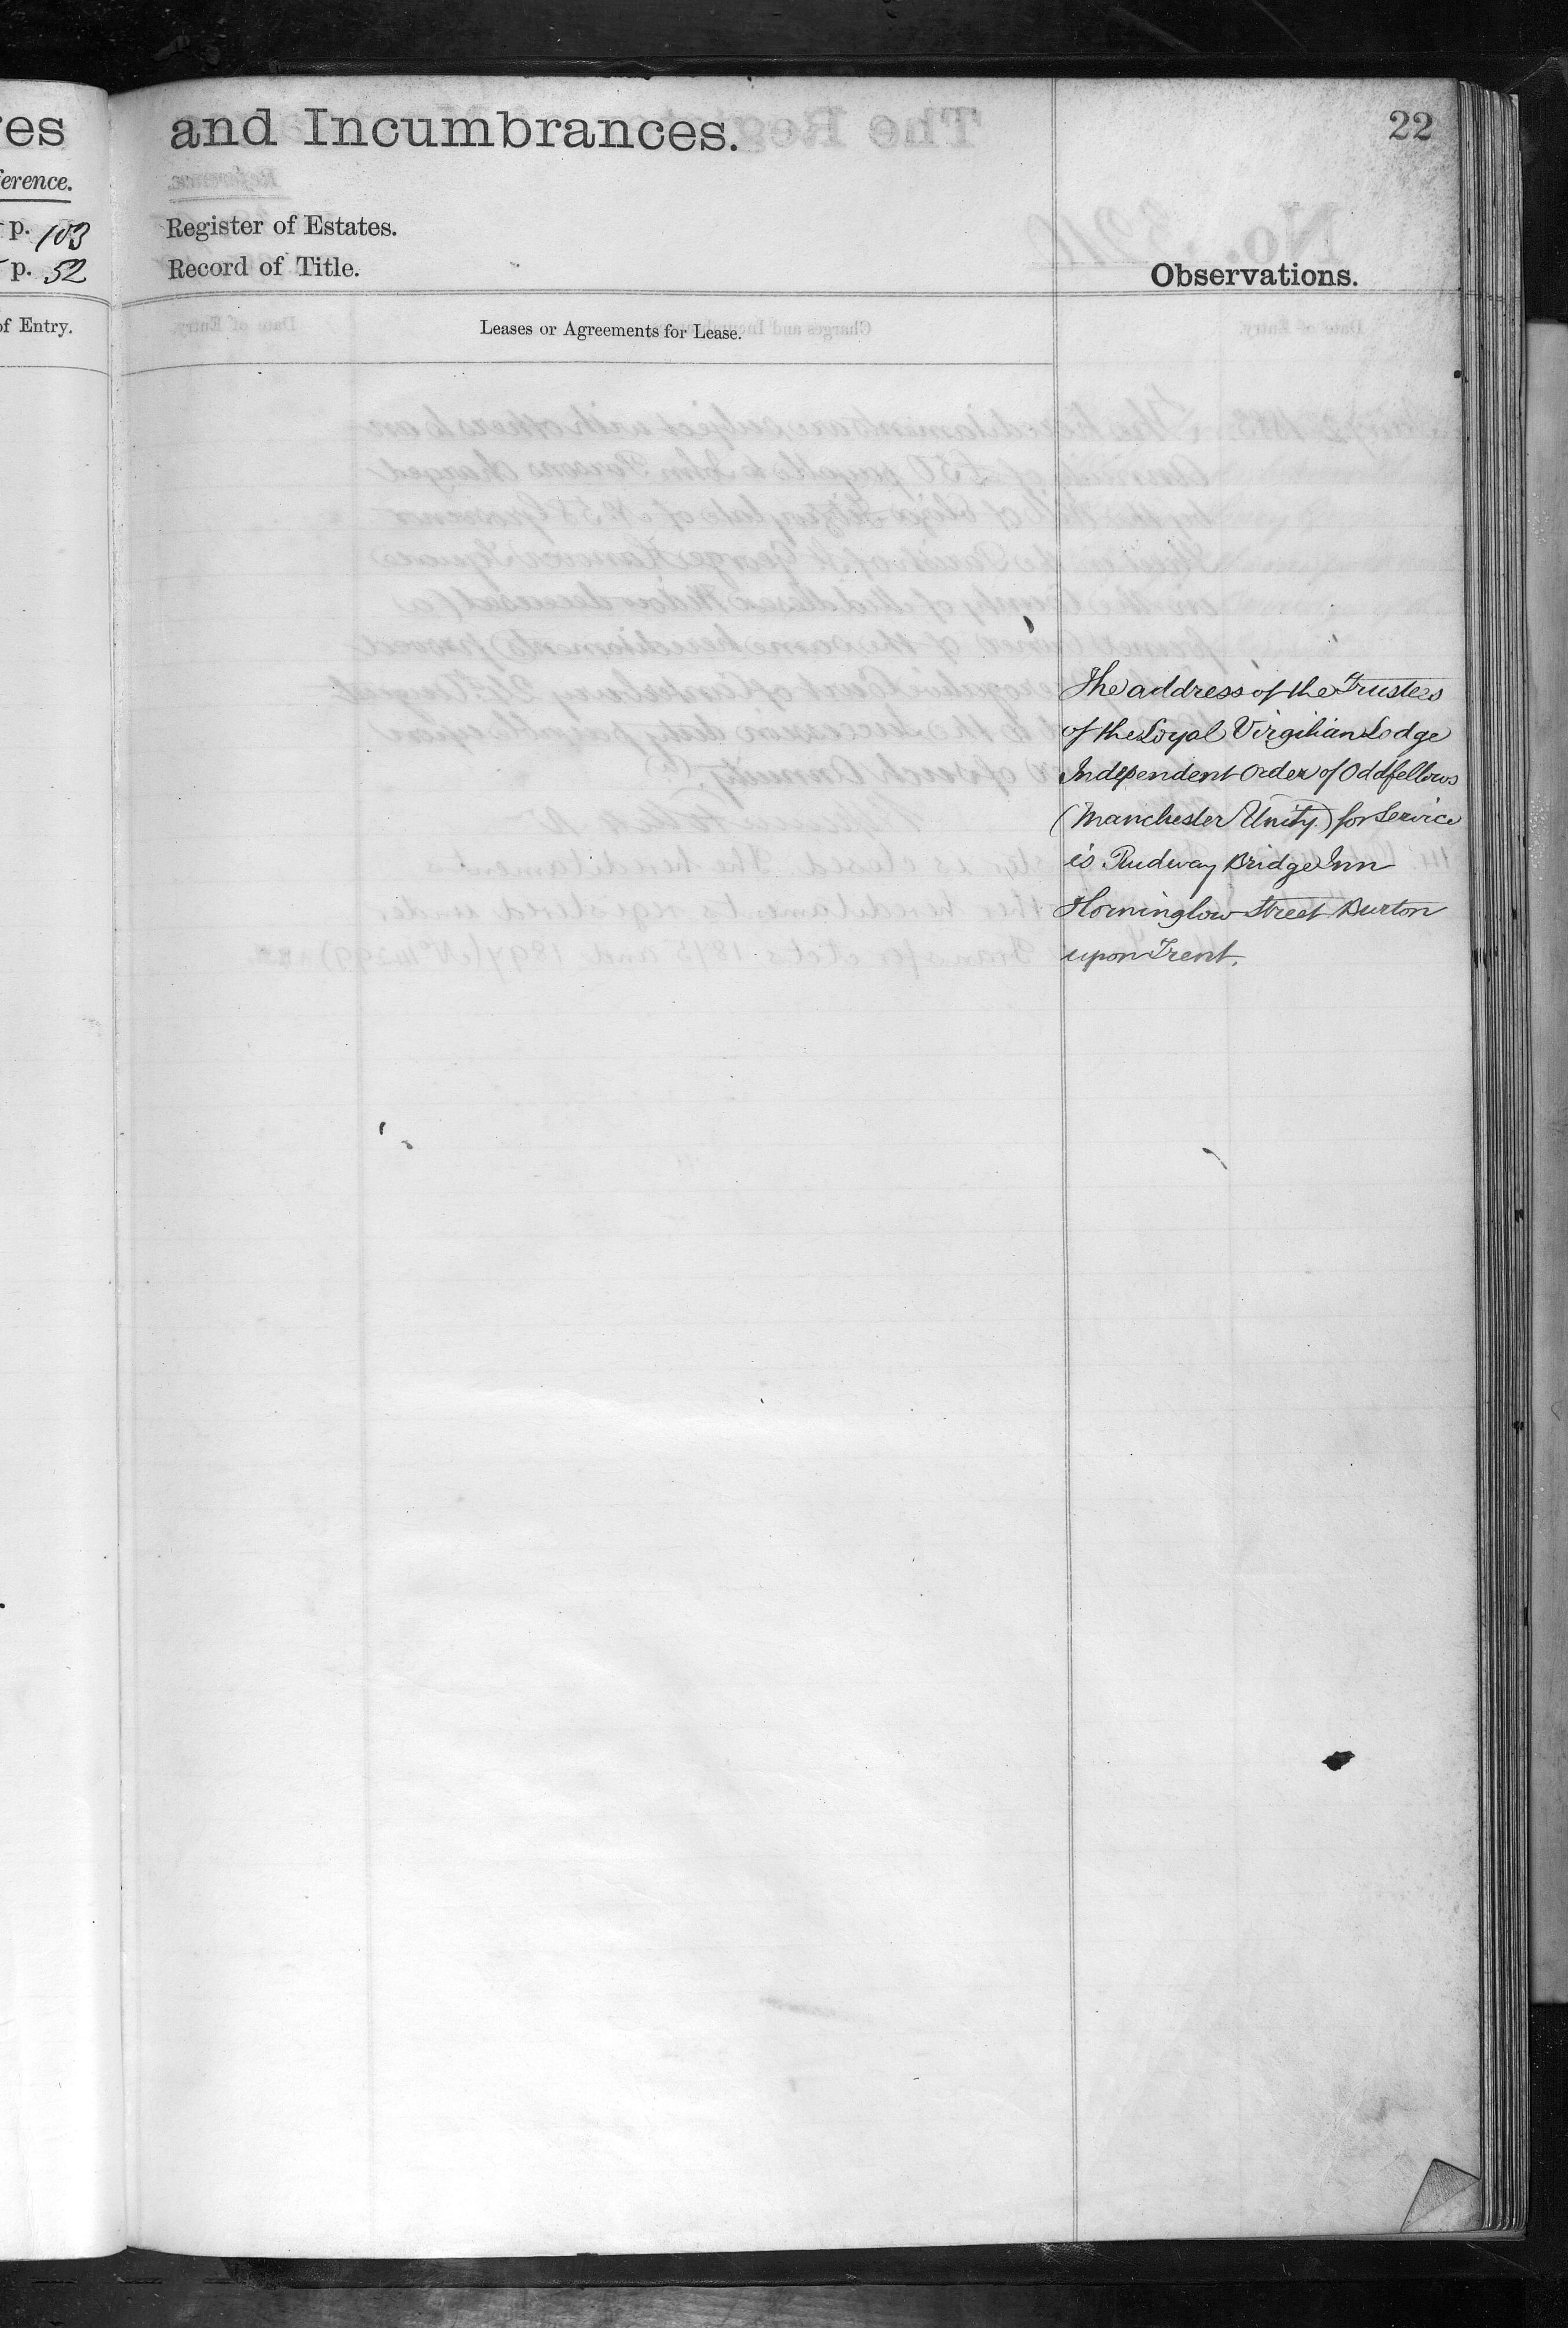 res
ference.
p. 103
p. 52
of Entry.
and Incumbrances.
22
Register of Estates.
Record of Title.
Observations.
Leases or Agreements for Lease.
The address of the Trustees
of the Loyal Virgilian Lodge
Independent Order of Oddfellows
(Manchester Unity) for Service
is Rudway Bridge Inn
Horninglow Street Burton
upon Trent.